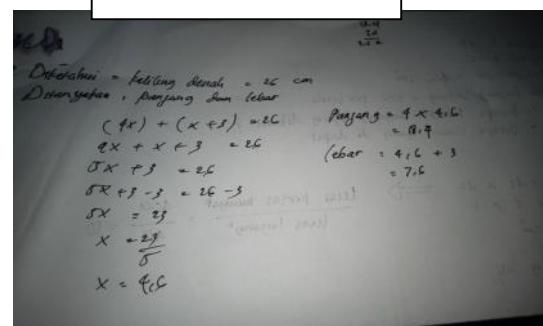 Diketahui = keliling denah = 26 cm
Ditanyakan, panjang dan lebar
(4x) + (x + 3) = 26
4x + x + 3 = 26
5x + 3 = 26
5x + 3 - 3 = 26 - 3
5x = 23
x = 23
5
x = 4,6
Panjang = 4 x 4,6
= 18,4
Lebar = 4,6 + 3
= 7,6